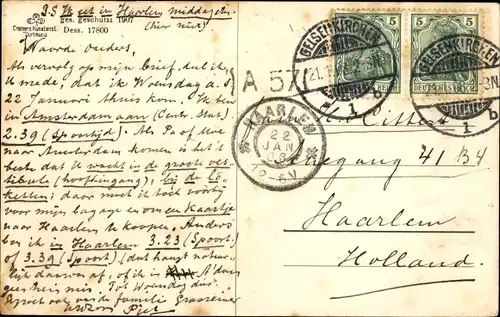 3.54 uur in Haarlem middag
(hier niet)
Cramers Kunstanst.
Dortmund
ges. geschützt 1907
Dess. 17800
Waarde ouders,
Als vervolg op mijn brief, deel ik
U mede, dat ik Woensdag a.s.
22 Januari thuis kom. Ik ben
in Amsterdam aan (Centr. Stat.)
2.39 (Spoortijd). Als Pa of Moe
naar Amsterdam komen is het 't
beste dat U wacht in de groote ves-
tibule (hoofdingang), bij de lo-
ketten; daar moet ik toch voorbij
voor mijn bagage en om een kaartje
naar Haarlem te koopen. Anders
ben ik in Haarlem 3.23 (Spoort.)
of 3.39 (Spoort) (dat hangt natuur-
lijk daarvan af, of ik in A'dam
Tot Woensdag dus.
Groet ook van de familie
Piet
5
5
GELSENKIRCHEN
GELSENKIRCHEN
1 b
1 b
A 57
HAARLEM
22
JAN
08
12-6V
41 B4
Haarlem
Holland.